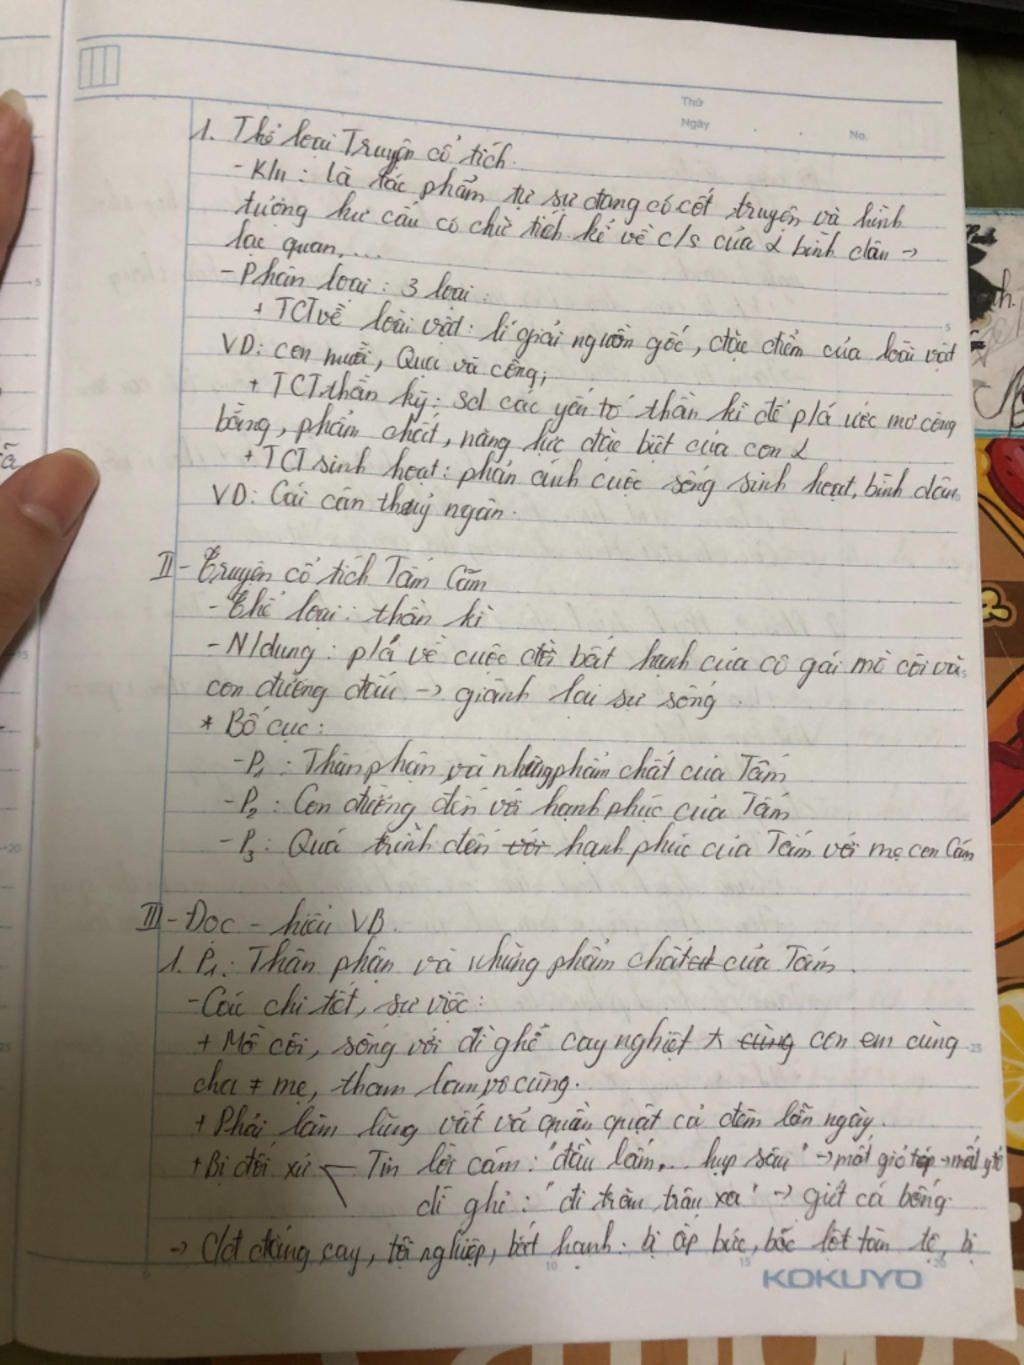 Thứ
Ngày
No.
1. Thể loại Truyện cổ tích.
- K/n : là tác phẩm tự sự dang có cốt truyện và hình
tượng hư cấu có chủ tích kể về c/s của bình dân →
lạc quan,...
- Phân loại : 3 loại :
+ TCT về loài vật : lí giải nguồn gốc, đặc điểm của loài vật
VD: con muỗi, Quạ và công;
+ TCT thần kỳ : sd các yếu tố thần kì để p/á ước mơ công
bằng, phẩm chất, năng lực đặc biệt của con
+ TCT sinh hoạt : phản ánh cuộc sống sinh hoạt, bình dân
VD: Cái cân thuỷ ngân.
II - Truyện cổ tích Tấm Cám
- Thể loại : thần kì
- N/dung : p/á về cuộc đời bất hạnh của cô gái mồ côi và
con đường đấu → giành lại sự sống
* Bố cục :
- P1 : Thân phận và những phẩm chất của Tấm
- P2 : Con đường đến với hạnh phúc của Tấm
- P3 : Quá trình đến với hạnh phúc của Tấm với mẹ con Cám
III - Đọc - hiểu VB.
1. P1 : Thân phận và những phẩm chất của Tấm.
- Các chi tiết, sự việc :
+ Mồ côi, sống với dì ghẻ cay nghiệt cùng con em cùng
cha ≠ mẹ, tham lam vô cùng.
+ Phải làm lũng vất vả quần quật cả đêm lẫn ngày.
+ Bị đối xử Tin lời cám : "đầu lấm... hụp sâu" → mất giỏ tép →
dì ghẻ : "đi trâu trâu xa" → giết cá bống
→ C/đ đắng cay, tội nghiệp, bất hạnh : bị áp bức, bóc lột tàn tệ, bị
KOKUYO